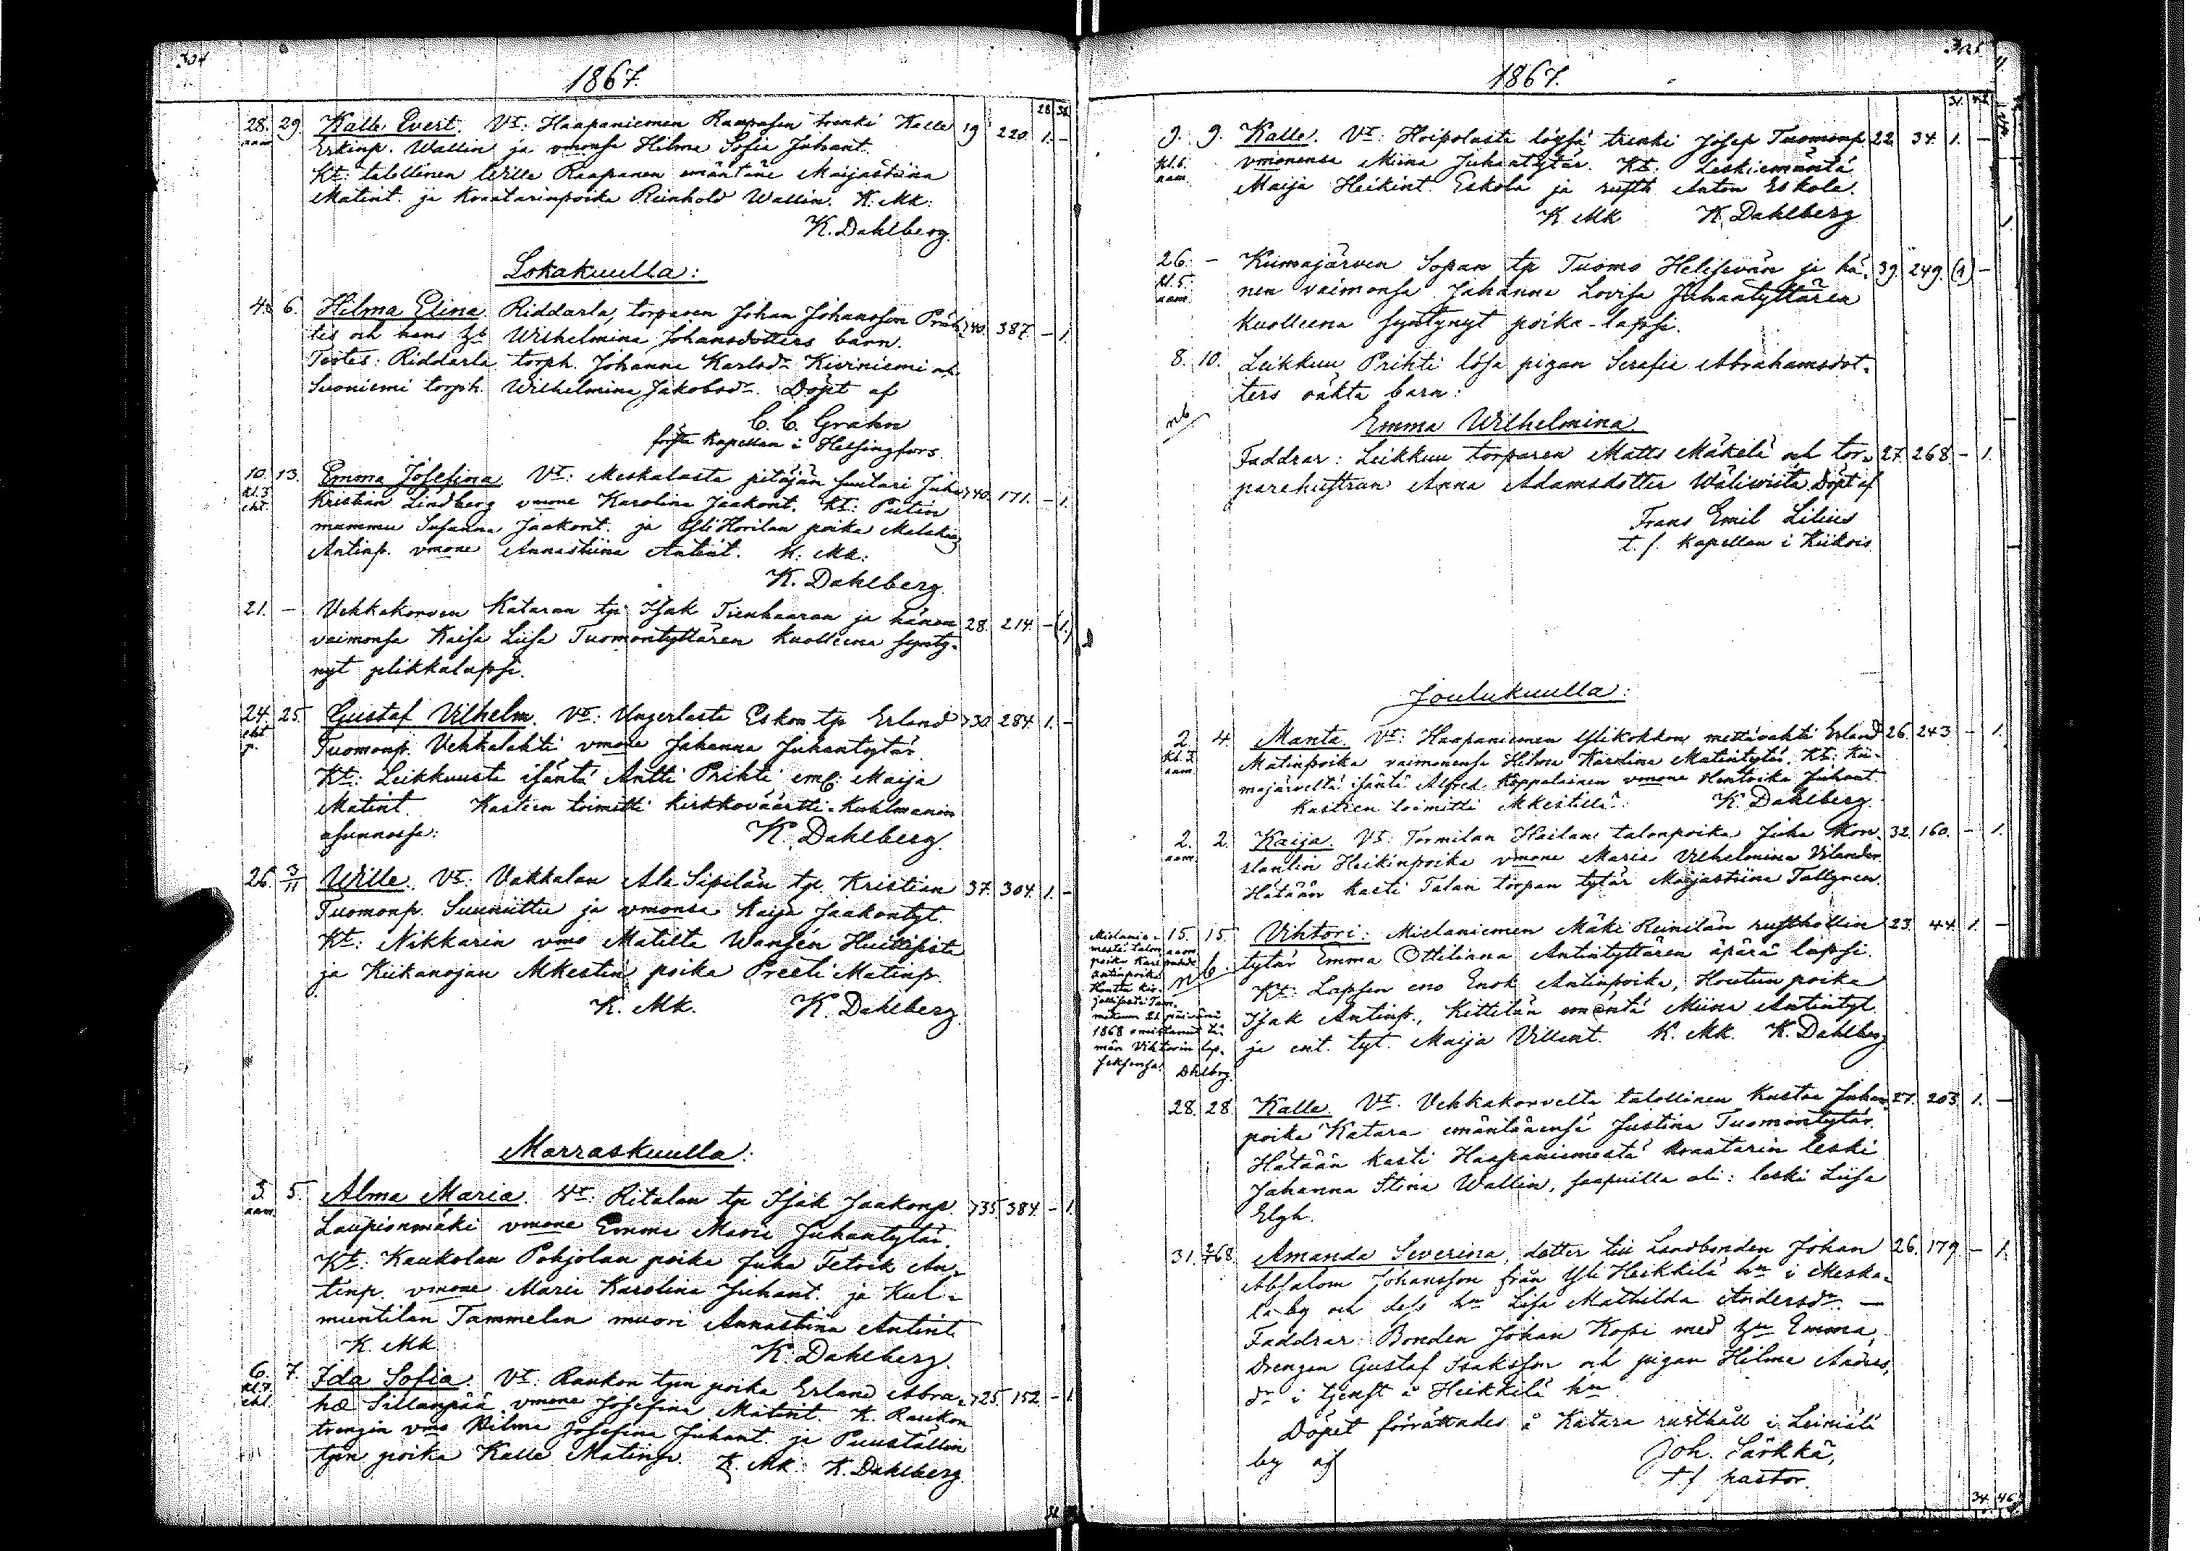 304
1867.
28 31
28. 29. Kalle Evert. Vt: Haapaniemen Raapasen trenki Kalle 19 220. 1. -
aam Erkinp. Wallin ja vmonsa Hilma Sofia Juhant.
Kt: talollinen Wille Raapanen emäntäne Maijastiina
Matint. ja Kraatarinpoika Reinhold Wallin. K. Mk:
K. Dahlberg.
Lokakuulla:
4. 6. Hilma Elina Riddarla, torparen Johan Johansson Präh- 40. 387. - 1.
tis och hans h. Wilhelmina Johansdotters barn.
Testes: Riddarla torph. Johanna Karlsdr Kiviniemi och
Suoniemi torph. Wilhelmina Jakobsdr. Döpt af
C. C. Grahn
förste Kapellan i Helsingfors.
10. 13. Emma Josefina Vt: Meskalasta pitäjän suutari Juha 40. 171. - 1.
kl. 3. Kristian Lindberg vmone Karolina Jaakont. Kt: Putin
eht. mummu Susanna Jaakont. ja YliHorilan poika Malakias
Antinp. vmone Annastiina Antint. K. Mk:
K. Dahlberg.
21. - Vehkakorven Kataran tp. Isak Tienhaaran ja hänen 28. 214. - (1.)
vaimonsa Kaisa Liisa Tuomontyttären kuolleena synty-
nyt plikkalapsi.
24. 25. Gustaf Vilhelm. Vt: Ungerlasta Eskon tp Erland 30. 284. 1. -
eht Tuomonp. Vehkalahti vmone Johanna Juhantytär
p. Kt: Leikkuusta isäntä Antti Prihti emä: Maija
Matint. Kasteen toimitti kirkkoväärtti Kuhlmanin
asunnossa: K. Dahlberg.
26. 3/11 Wille. Vt: Vakkalan Ala Sipilän tp. Kristian 37. 304. 1. -
Tuomonp. Suuniittu ja vmonsa Kaija Jaakontyt.
Kt: Nikkarin vmo Matilta Wansén Huittisista
ja Kiikanojan Mkestin poika Preeti Matinp.
K. Mk. K. Dahlberg.
Marraskuulla:
5. 5. Alma Maria. Vt: Ritalan tp Isak Jaakonp. 35. 384. - 1.
aam Laupionmäki vmone Emma Maria Juhantytär,
Kt: Kaukolan Pohjolan poika Juha Fetrik An-
tinp. vmone Maria Karolina Juhant. ja Kul-
mientilan Tammelan muori Annastiina Antint.
K. Mk K. Dahlberg.
6. 7. Ida Sofia. Vt: Raukon tpn poika Erland Abra- 25. 152. - 1
eht. ha. Sillanpää vmone Josefina Matint. K. Raukon
trengin vmo Vilma Josefina Juhant. ja Puuställin
tpn poika Kalle Matinp. K. Mk: K. Dahlberg.
1867.
31.
9. 9. Kalle. Vt: Hoipolasta löysä trenki Josep Tuomonp. 22. 34. 1. -
kl. 6. vmonensa Miina Juhantytär. Kt: Leskiemäntä
aam. Maija Heikint. Eskola ja rusth. Anton Eskola.
K Mk K. Dahlberg
26. - Kiimajärven Sopan tp Tuomo Helisevän ja hä- 39. 249. (1) -
kl. 5. nen vaimonsa Johanna Lovisa Juhantyttären
aam. kuolleena syntynyt poika-lapsi.
8. 10. Leikkuu Prihti lösa pigan Serafia Abrahamsdot-
ters oäkta barn:
nb Emma Wilhelmina
Faddrar: Leikkuu torparen Matts Mäkelä och tor- 27. 268. - 1.
parehustrun Anna Adamsdotter Wäliviita. Döpt af
Frans Emil Lilius
t. f. Kapellan i Kiikois
Joulukuulla:
2. 4. Manta. Vt: Haapaniemen Ylikokkon mettävahti Erland 26. 243 - 1.
aam Matinpoika vaimonensa Hilma Karolina Matintytär. Kt: Kii-
majärveltä isäntä Alfred Koppalainen vmone Hentrika Juhant.
Kasteen toimitti Mkestillä: K. Dahlberg.
2. 2. Kaija. Vt: Tormilan Hailan talonpoika Juha Kon- 32. 160. - 1.
aam stantin Heikinpoika vmone Maria Vilhelmina Vilander.
Hätään kasti Talan torpan tytär Maijastiina Tallgren.
15. 15. Vihtori: Mielaniemen Mäki Reinilän rusthollin 23. 44. 1. -
nb. tytär Emma Ottiliana Antintyttären äpärä lapsi.
Kt: Lapsen eno Enok Antinpoika, Houtun poika
Isak Antinp., Kittilän emäntä Miina Antintyt.
ja ent. tyt. Maija Villent. K. Mk. K. Dahlberg
1868 omistanut tä-
män Vihtorin lap-
seksensa. Dhlbrg.
28. 28. Kalle. Vt. Vehkakorvelta talollinen Kustaa Juhan- 27. 203 1. -
poika Katara emäntäänsä Justina Tuomontytär.
Hätään kasti Haapaniemestä kraatarin leski
Johanna Stina Wallin, saapuilla oli: leski Liisa
Elgh.
31. Amanda Severina, dotter till Landbonden Johan 26. 179. - 1.
Absalom Johansson från Yli Heikkilä hn i Meska-
la by och dess hu Lisa Mathilda Andersdr. —
Faddrar: Bonden Johan Kopi med hu Emma,
Drengen Gustaf Isaksson och pigan Hilma Anders-
dr i tjenst å Heikkilä hn
Döpet förrättades å Katara rusthåll i Leiniälä
by af Joh. Särkkä,
t. f. pastor.
34. 46.